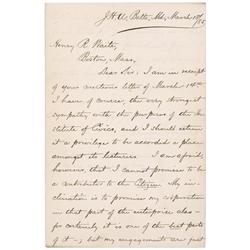 J.H.U., Balto., Md., March 18/85
Henry R. Waite,
Boston, Mass.
Dear Sir: I am in receipt
of your courteous letter of March 14th.
I have, of course, the very strongest
sympathy with the purposes of the In-
stitute of Civics, and I should esteem
it a privilege to be accorded a place
amongst its lecturers. I am afraid,
however, that I cannot promise to be
a contributor to the Citizen. My in-
clination is to promise my cooperation
in that part of the enterprise also—
for certainly it is one of the best parts
of it—, but my engagements are just